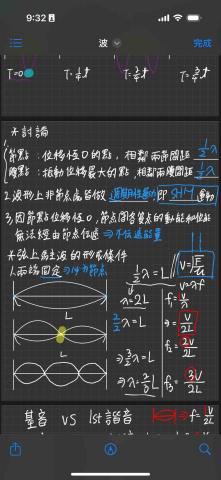 9:32
波
完成
T=0
T=1/4t
T=2/4t
T=3/4t
※討論
1.節點：位移恆0的點，相鄰兩節間距 1/2λ
腹點：振動位移最大的點，相鄰兩腹間距 1/2λ
2.波形上非節點處皆做 週期性運動 即 SHM 運動
3.因節點位移恆0，節點間各質點的動能和位能
無法經由節點傳遞 ⇒ 不傳遞能量
※弦上駐波的形成條件
1.兩端固定 ⇒ 必為節點
1/2λ=L
V=√F/μ
V=λf
L
λ=2L
f₁=V/λ
⇒=V/2L
2/2λ=L
f₂=2V/2L
L
⇒3/2λ=L
⇒λ=2/3L
f₃=3V/2L
基音 VS 1st諧音
⇒f=V/2L